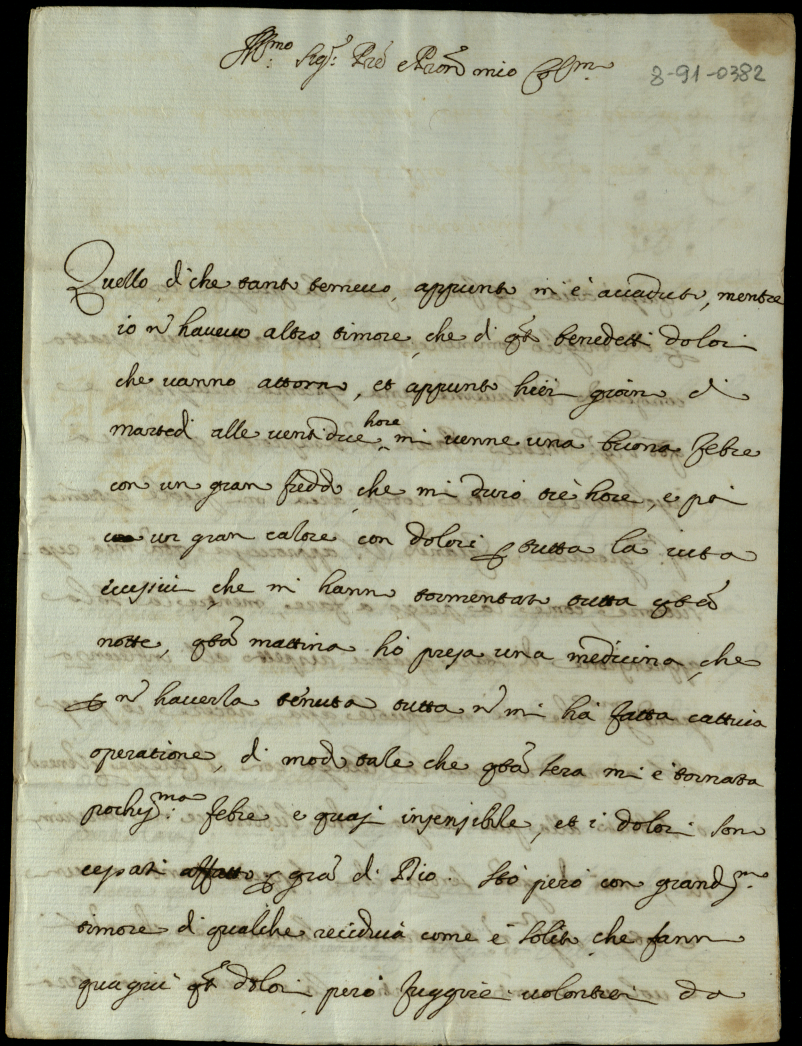 Ill.mo Sig.r P̃re e Pron̄ mio Col.mo
8-91-0382
Quello, di che tanto temevo, appunto mi è accaduto, mentre
io ñ havevo altro timore, che di q̃ti benedetti dolori
che vanno attorno, et appunto hieri giorno di
martedì alle ventidue hore mi venne una buona febre
con un gran freddo, che mi durò trè hore, e poi
un gran calore con dolori p tutta la vita
eccessivi, che mi hanno tormentato tutta q̃sta
notte, q̃sta mattina hò presa una medicina, che
p ñ haverla tenuta tutta ñ mi hà fatta cattiva
operatione, di modo tale che q̃sta sera mi è tornata
pochiss.ma febre e quasi insensibile, et i dolori sono
cessati affatto p gra͂ di Dio. Stò però con grandiss.mo
timore di qualche recidiva come è solito che fanno
quagiù q̃ti dolori, però fuggirei volontieri da